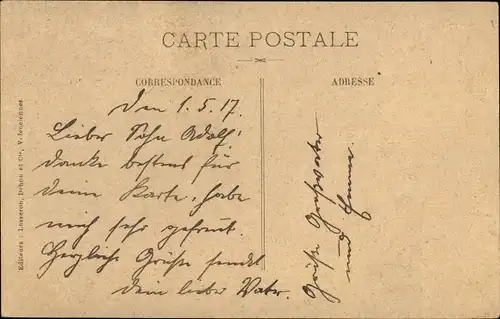 CARTE POSTALE
CORRESPONDANCE
ADRESSE
Den 1. 5. 17.
Lieber Sohn Adolf!
danke bestens für
deine Karte, habe
mich sehr gefreut.
Herzliche Grüße sendet
dein lieber Vater.
Grüße Großvater
und Emma.
Editeurs : Lasseron, Dehou et Cie, Valenciennes